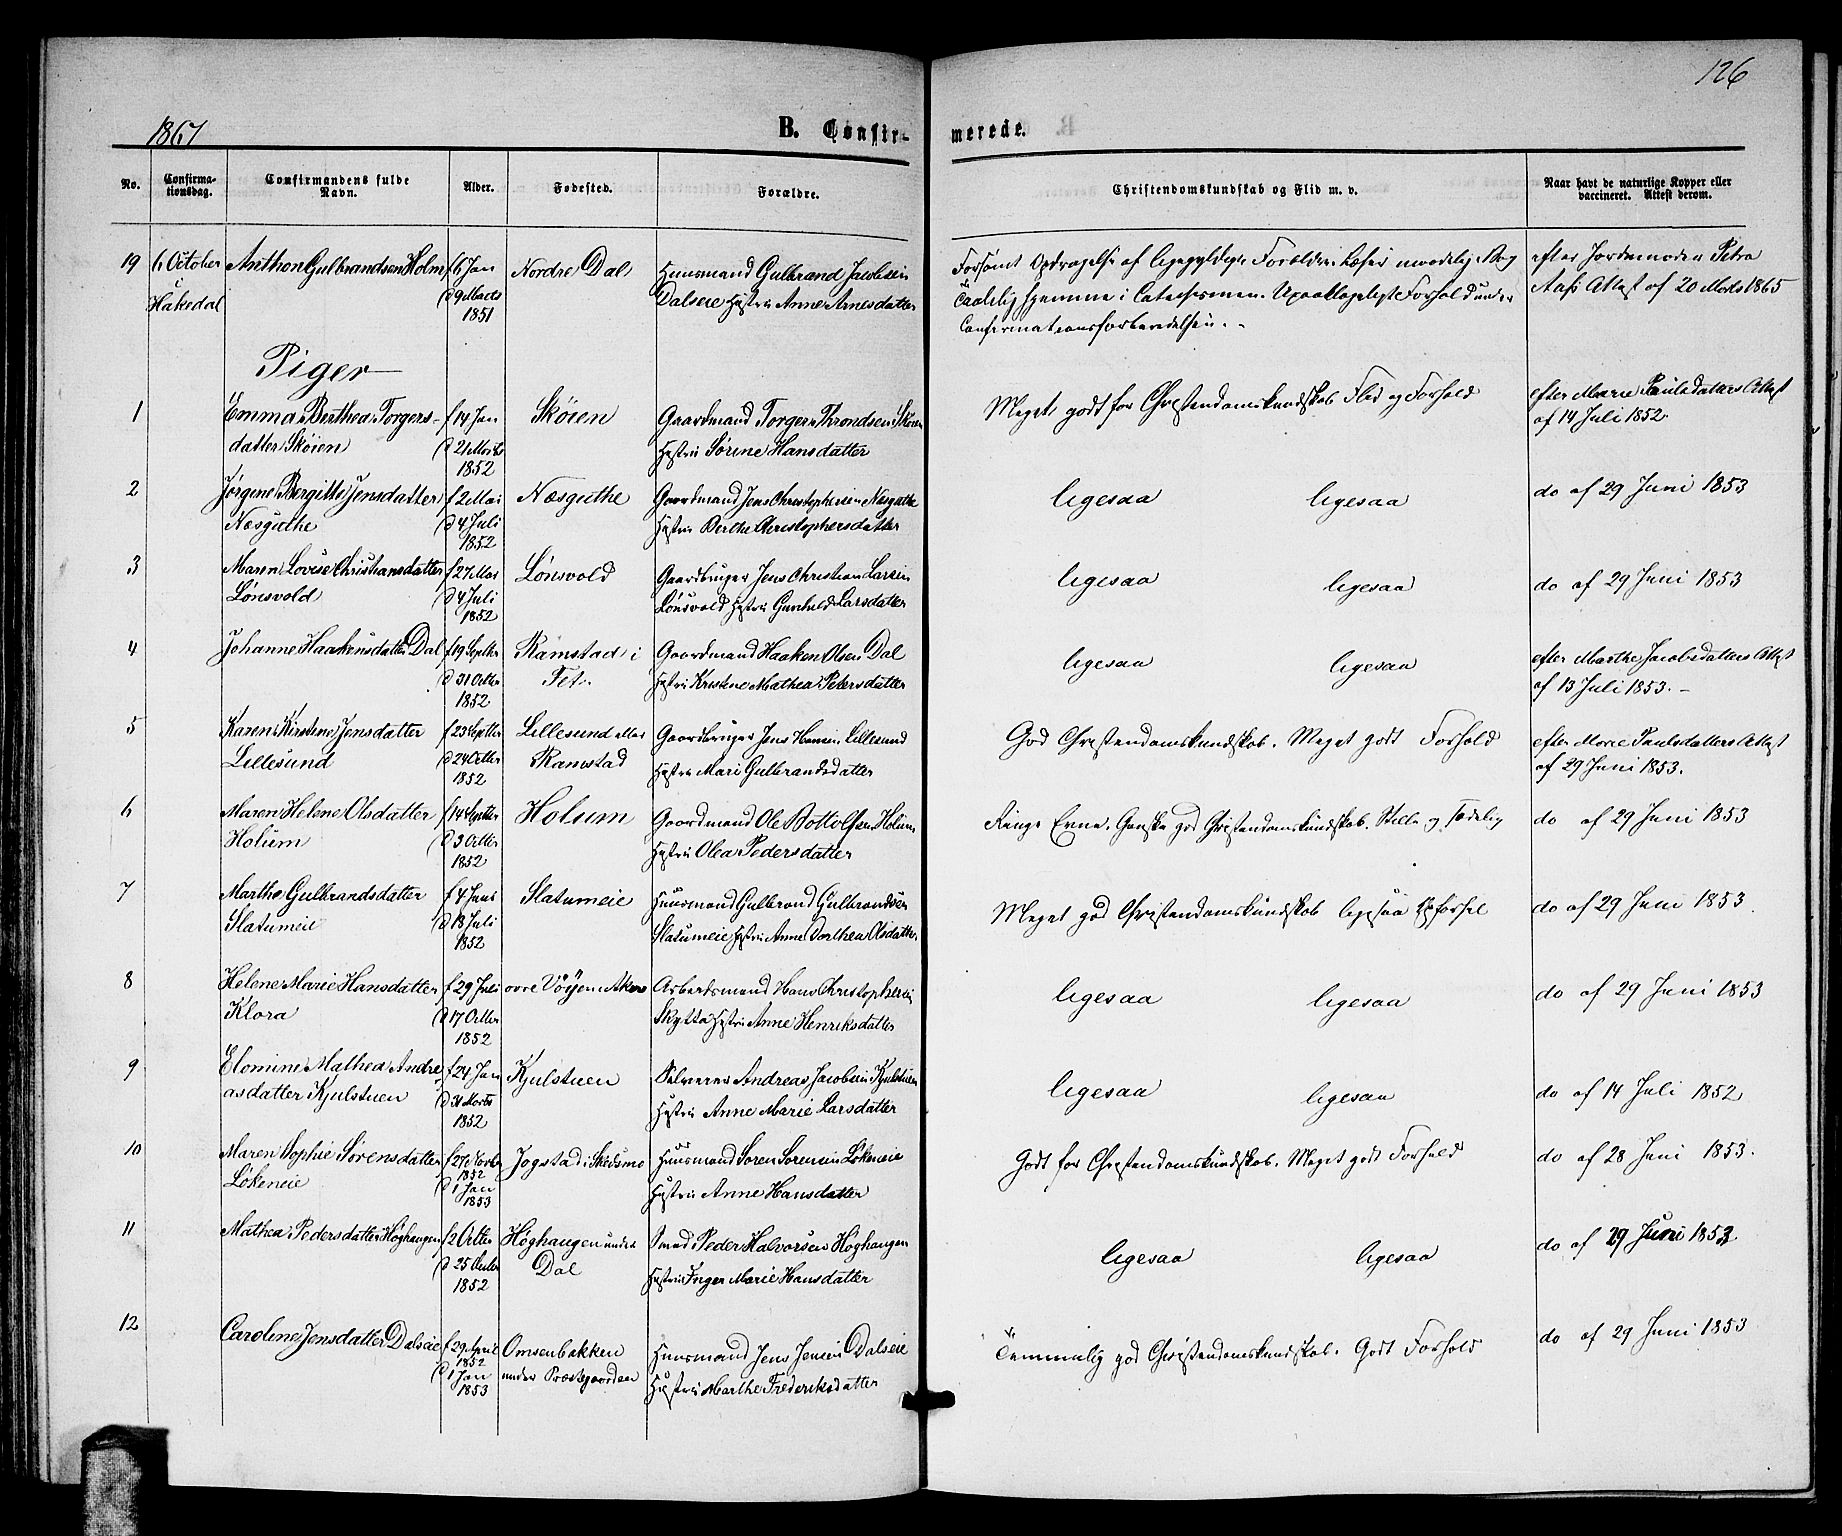 126
1867
B. Confir-
merede.
No.
Confirma-
tionsdag.
Confirmandens fulde
Navn.
Alder.
Fødested.
Forældre.
Christendomskundskab og Flid m. v.
Naar havt de naturlige Kopper eller
vaccineret. Attest derom.
19 6 October Anthon Gulbrandsen Holm f 6 Jan Nordre Dal Huusmand Gulbrand Jacobsen Forsømt Opdragelse af ligegyldige Forældre. Læser maadelig i Bog efter Jordemoder Petra
Hakedal d 9 Marts Dalseie Hustru Anne Arnesdatter Taalelig hjemme i Catechismen. Upaaklageligt Forhold under Aas's Attest af 20 Marts 1865
1851 Confirmationsforberedelsen.
Piger
1 Emma Berthea Torgers- f 14 Jan Skøien Gaardmand Torger Throndsen Skøien Meget godt for Christendomskundskab Flid og Forhold efter Marie Paulsdatters Attest
datter Skøien d 21 Marts Hustru Sørine Hansdatter af 14 Juli 1852
1852
2 Jørgene Bergitte Jensdatter f 2 Mai Næsguthe Gaardmand Jens Christophersen Næsguthe ligesaa ligesaa do af 29 Juni 1853
Næsguthe d 4 Juli Hustru Berthe Christophersdatter
1852
3 Maren Lovise Christiansdatter f 27 Mai Lønsvold Gaardbruger Jens Christian Larsen ligesaa ligesaa do af 29 Juni 1853
Lønsvold d 4 Juli Lønsvold Hustru Gunhild Larsdatter
1852
4 Johanne Haakensdatter Dal f 19 Septbr Ramstad i Gaardmand Haaken Olsen Dal ligesaa ligesaa efter Marthe Jacobsdatters Attest
d 31 Octbr Fet. Hustru Kristine Mathea Petersdatter af 13 Juli 1853.
1852
5 Karen Kirstine Jensdatter f 23 Septbr Lillesund eller Gaardbruger Jens Hansen Lillesund God Christendomskundskab. Meget godt Forhold efter Marie Paulsdatters Attest
Lillesund d 24 Octbr Ramstad Hustru Mari Gulbrandsdatter af 29 Juni 1853.
1852
6 Maren Helene Olsdatter f 14 Septbr Holum Gaardmand Ole Bottolfsen Holum Ringe Evne. Ganske god Christendomskundskab. Stille og sædelig do af 29 Juni 1853
Holum d 3 Octbr Hustru Olea Pedersdatter
1852
7 Marthe Gulbrandsdatter f 4 Juni Slatumeie Huusmand Gulbrand Gulbrandsen Meget god Christendomskundskab ligesaa Opførsel do af 29 Juni 1853
Slatumeie d 18 Juli Slatumeie Hustru Anne Dorthea Olsdatter.
1852
8 Helene Marie Hansdatter f 29 Juli øvre Vøyen Aker Arbeidsmand Hans Christophersen ligesaa ligesaa do af 29 Juni 1853
Klora d 17 Octbr Skytta Hustru Anne Henriksdatter
1852
9 Elomine Mathea Andre f 24 Jan Kjulstuen Selveier Andreas Jacobsen Kjulstuen ligesaa ligesaa do af 14 Juli 1852
asdatter Kjulstuen d 31 Marts Hustru Anne Marie Larsdatter
1852
10 Maren Sophie Sørensdatter f 27 Novbr Jogstad i Skedsmo Huusmand Søren Sørensen Løkeneie Godt for Christendomskundskab. Meget godt Forhold do af 28 Juni 1853.
Løkeneie 1852 d 1 Jan Hustru Anne Hansdatter
1853
11 Mathea Pedersdatter Høghaugen f 2 Octbr Høghaugen under Smed Peder Halvorsen Høghaugen ligesaa ligesaa do af 29 Juni 1853
d 25 Dal Hustru Inger Marie Hansdatter
1852
12 Caroline Jensdatter Dalseie f 29 April Omsenbakken Huusmand Jens Jensen Dalseie Temmelig god Christendomskundskab. Godt Forhold do af 29 Juni 1853
1852 d 1 Jan under Præstegaarden Hustru Marthe Frederiksdatter
1853